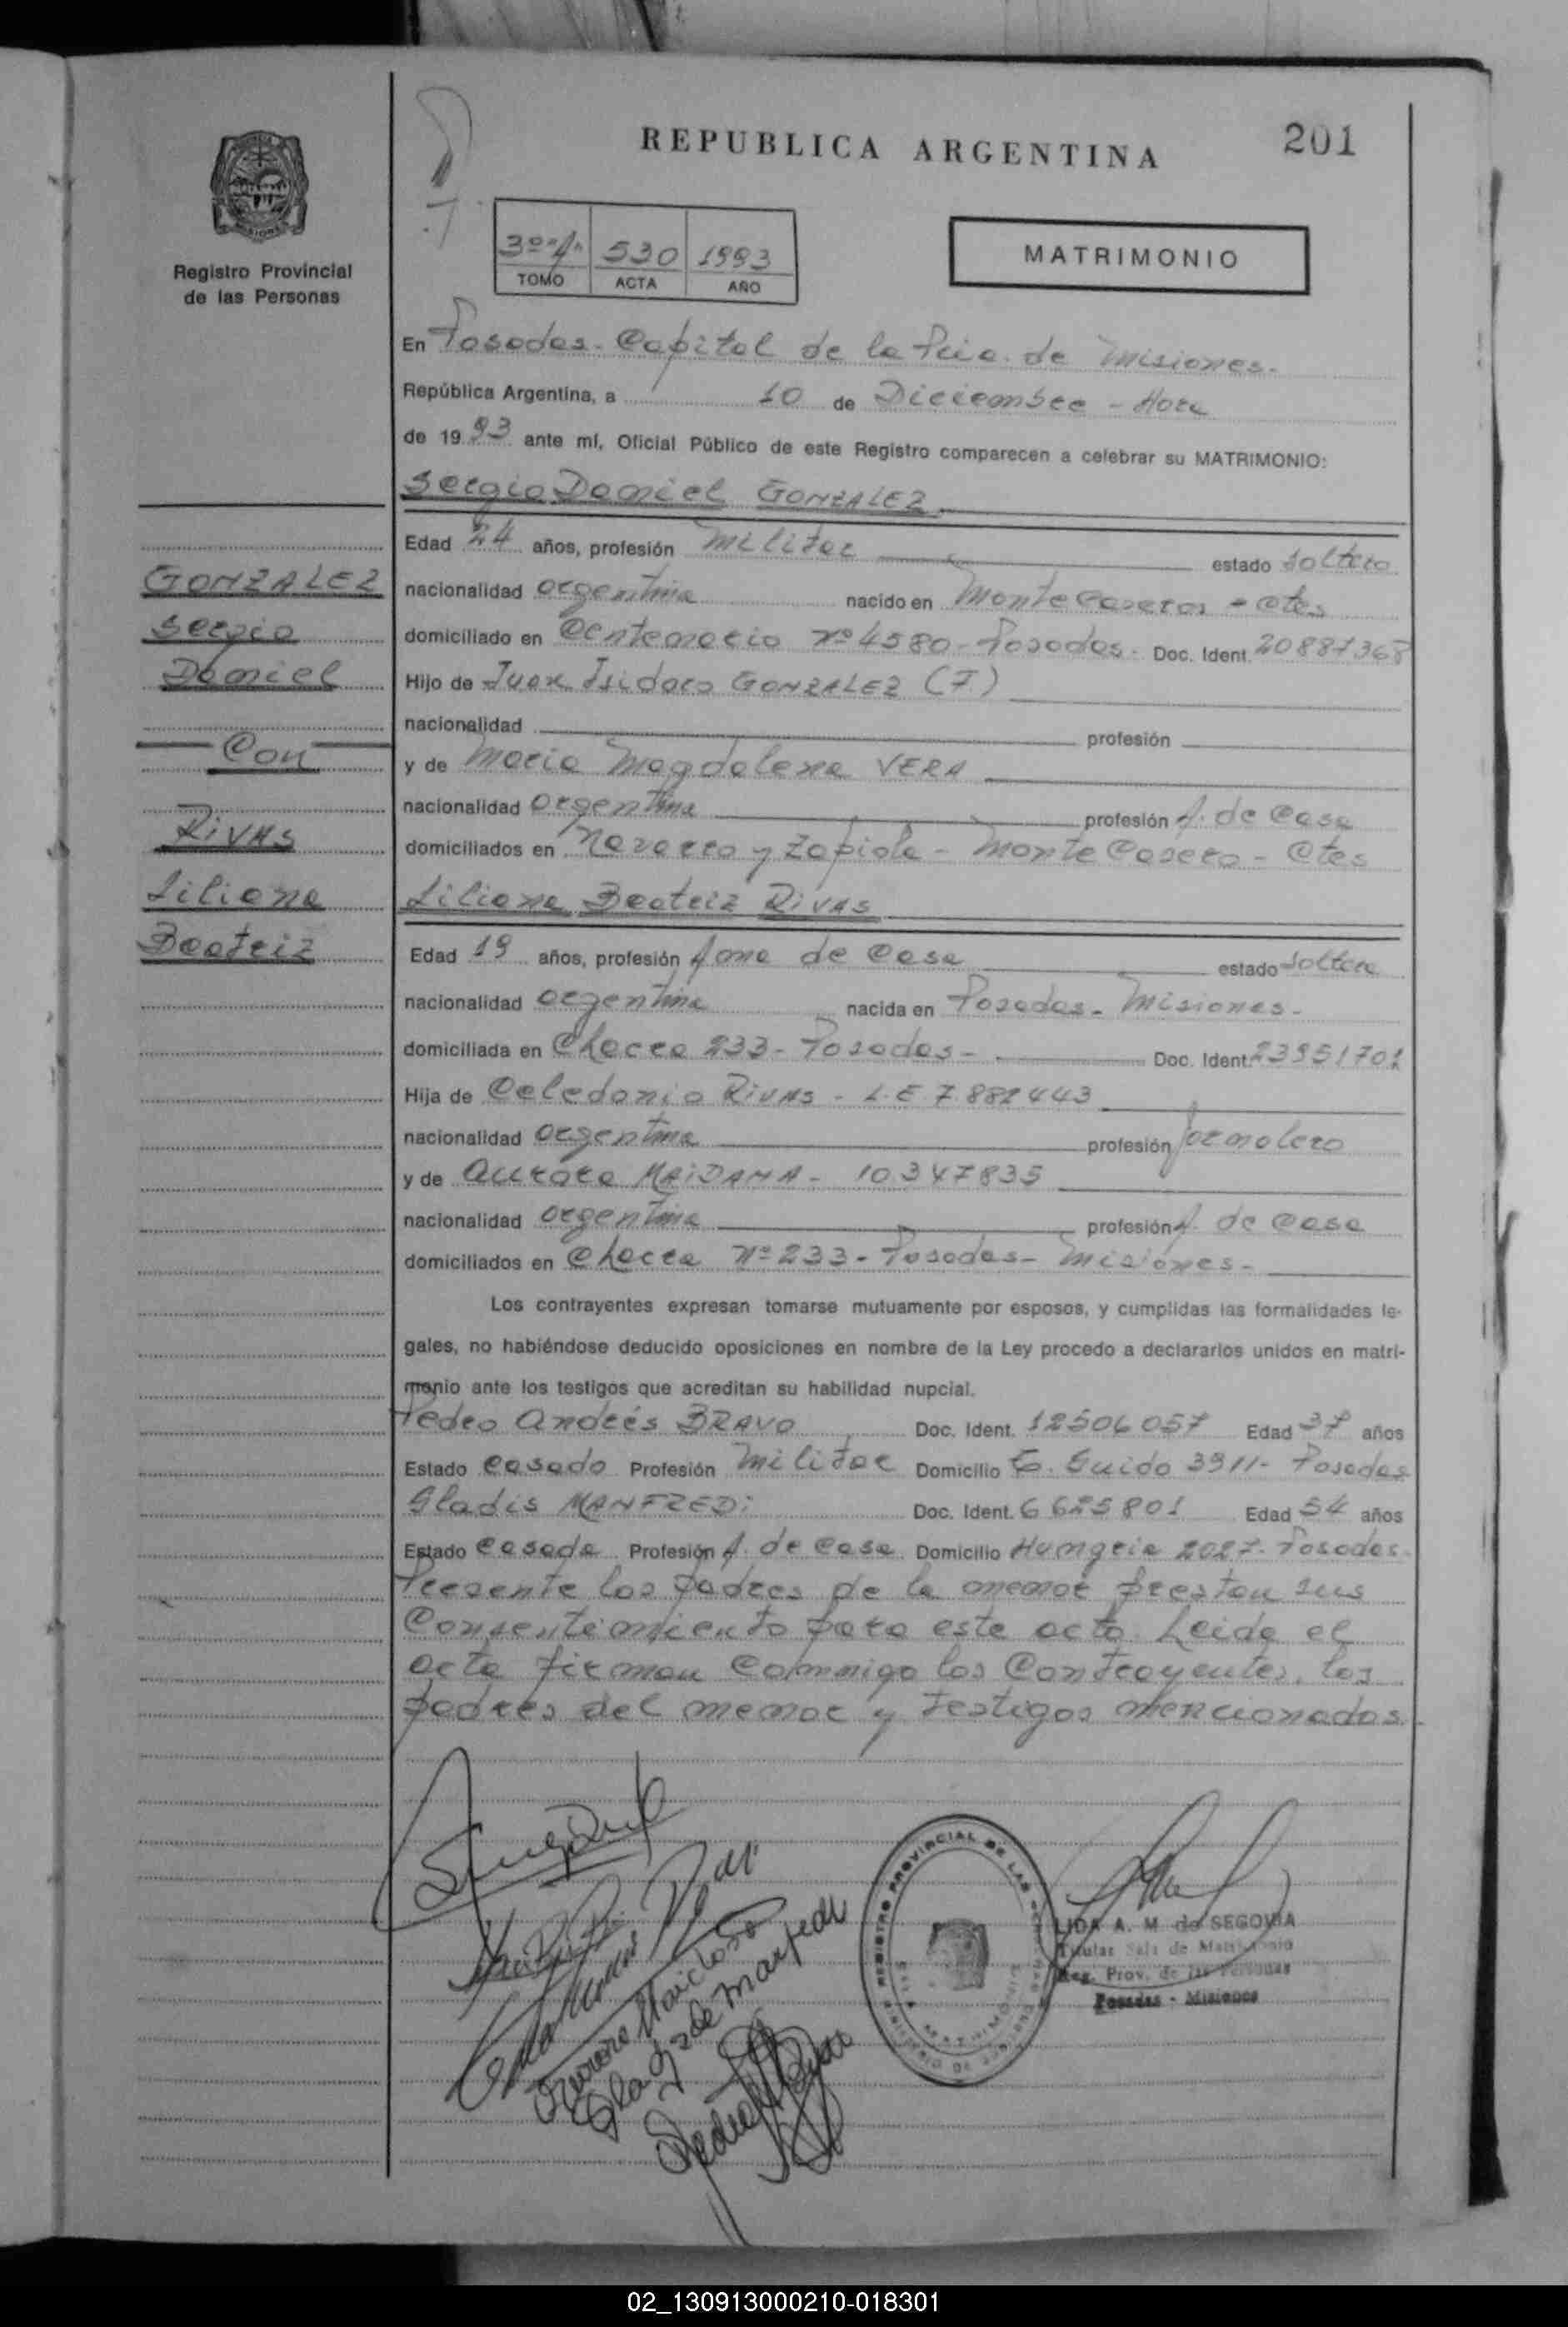 REPUBLICA ARGENTINA
201
Registro Provincial
de las Personas
530 1993
TOMO ACTA AÑO
MATRIMONIO
En Posadas - Capital de la Pcia. de Misiones.
República Argentina, a 10 de Diciembre - Hora
de 1993 ante mí, Oficial Público de este Registro comparecen a celebrar su MATRIMONIO:
Sergio Daniel GONZALEZ
Edad 24 años, profesión Militar estado soltero
nacionalidad argentina nacido en Monte Caseros - Ctes
domiciliado en Centenario Nº 4580 - Posadas - Doc. Ident. 20887368
Hijo de Juan Isidoro GONZALEZ (F.)
nacionalidad profesión
y de Maria Magdalena VERA
nacionalidad argentina profesión A. de Casa
domiciliados en Navarro y Zapiola - Monte Casero - Ctes
Liliana Beatriz RIVAS
Edad 19 años, profesión Ama de Casa estado soltera
nacionalidad argentina nacida en Posadas - Misiones -
domiciliada en Chacra 233 - Posadas - Doc. Ident. 23951701
Hija de Celedonio RIVAS - L.E 7.882443
nacionalidad argentina profesión Jornalero
y de Aurora MAIDANA - 10347835
nacionalidad argentina profesión A. de Casa
domiciliados en Chacra Nº 233 - Posadas - Misiones -
Los contrayentes expresan tomarse mutuamente por esposos, y cumplidas las formalidades le-
gales, no habiéndose deducido oposiciones en nombre de la Ley procedo a declararlos unidos en matri-
monio ante los testigos que acreditan su habilidad nupcial.
Pedro Andrés BRAVO Doc. Ident. 12506057 Edad 37 años
Estado Casado Profesión Militar Domicilio T. Guido 3911 - Posadas
Gladis MANFREDi Doc. Ident. 6625801 Edad 54 años
Estado Casada Profesión A. de Casa Domicilio Hungria 2027 - Posadas
Presente los padres de la menor prestan sus
Consentimiento para este acto. Leida el
acta firman Conmigo los Contrayentes, los
padres del menor y Testigos mencionados.
GONZALEZ
Sergio
Daniel
Con
RIVAS
Liliana
Beatriz
REGISTRO PROVINCIAL DE LAS PERSONAS
LIDA A. M. de SEGOVIA
Titular Sala de Matrimonio
Reg. Prov. de las Personas
Posadas - Misiones
02_130913000210-018301